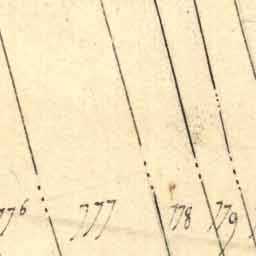 776 777 778 779